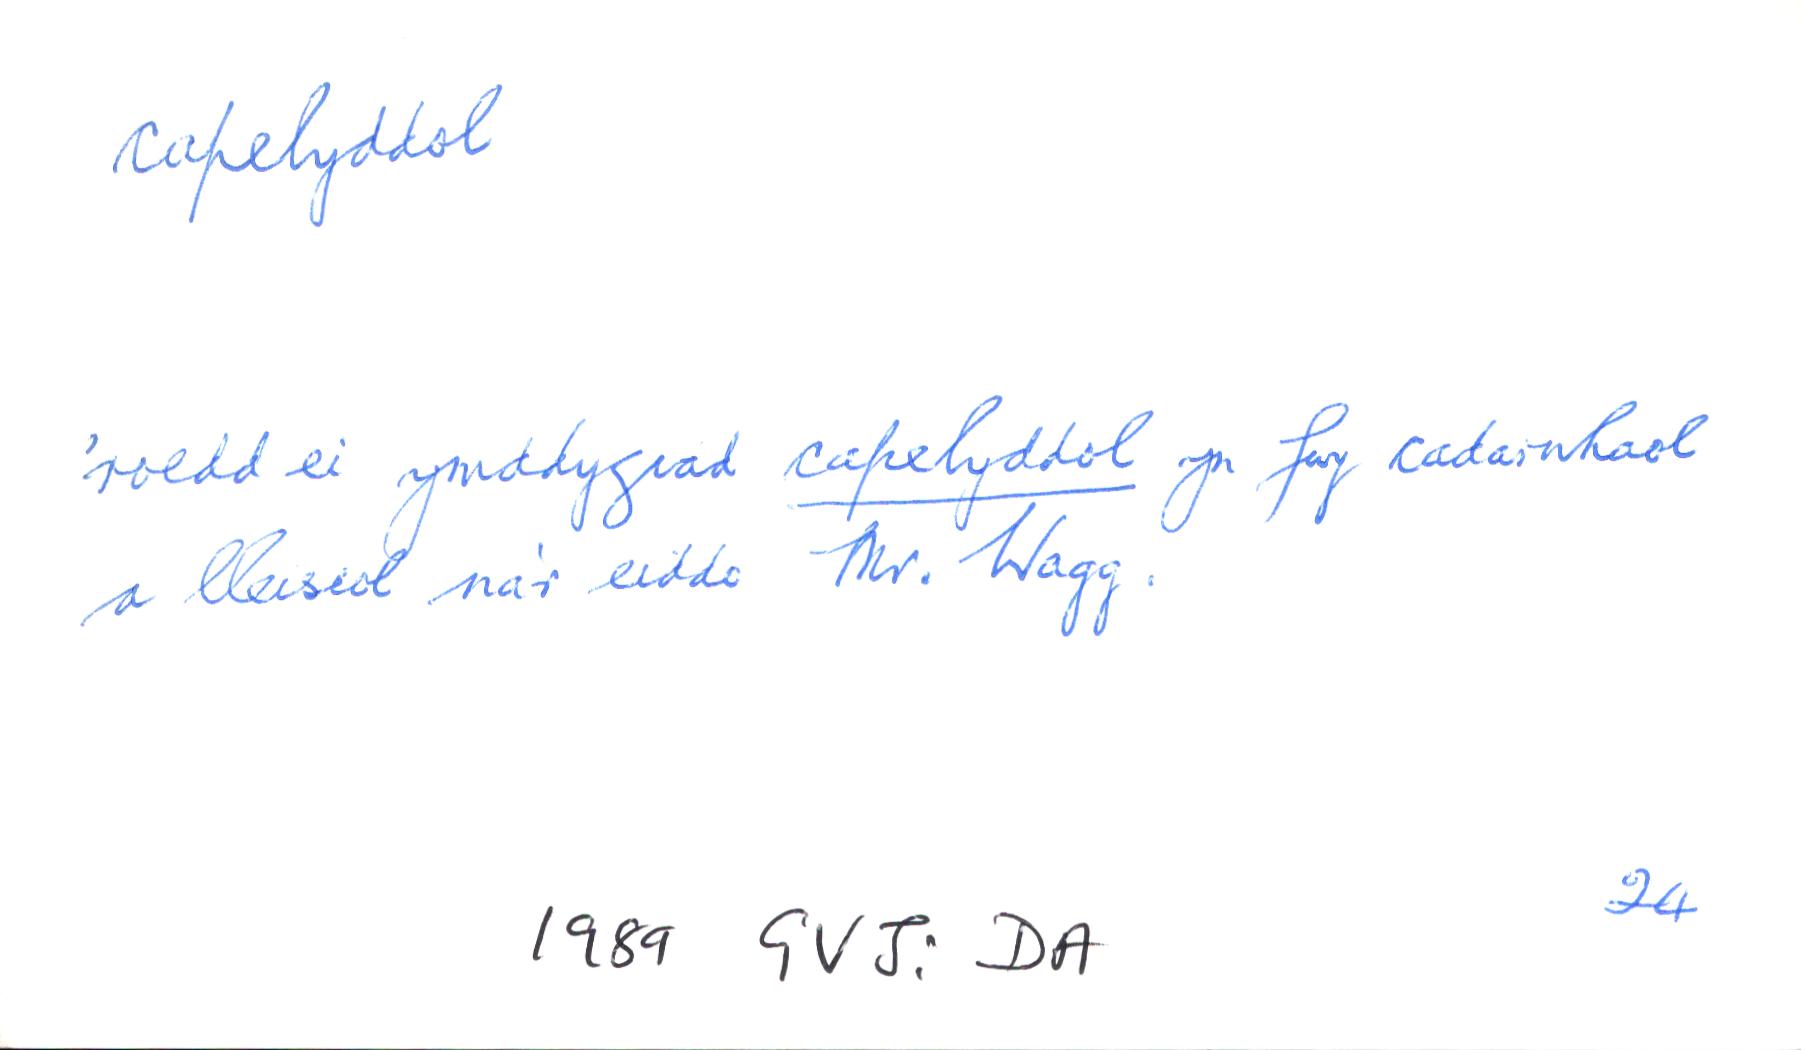 capelyddol
'roedd ei ymddygiad capelyddol yn fwy cadarnhaol
a lleisiol na'r eiddo Mr. Wagg.
24
1989 GVJ: DA